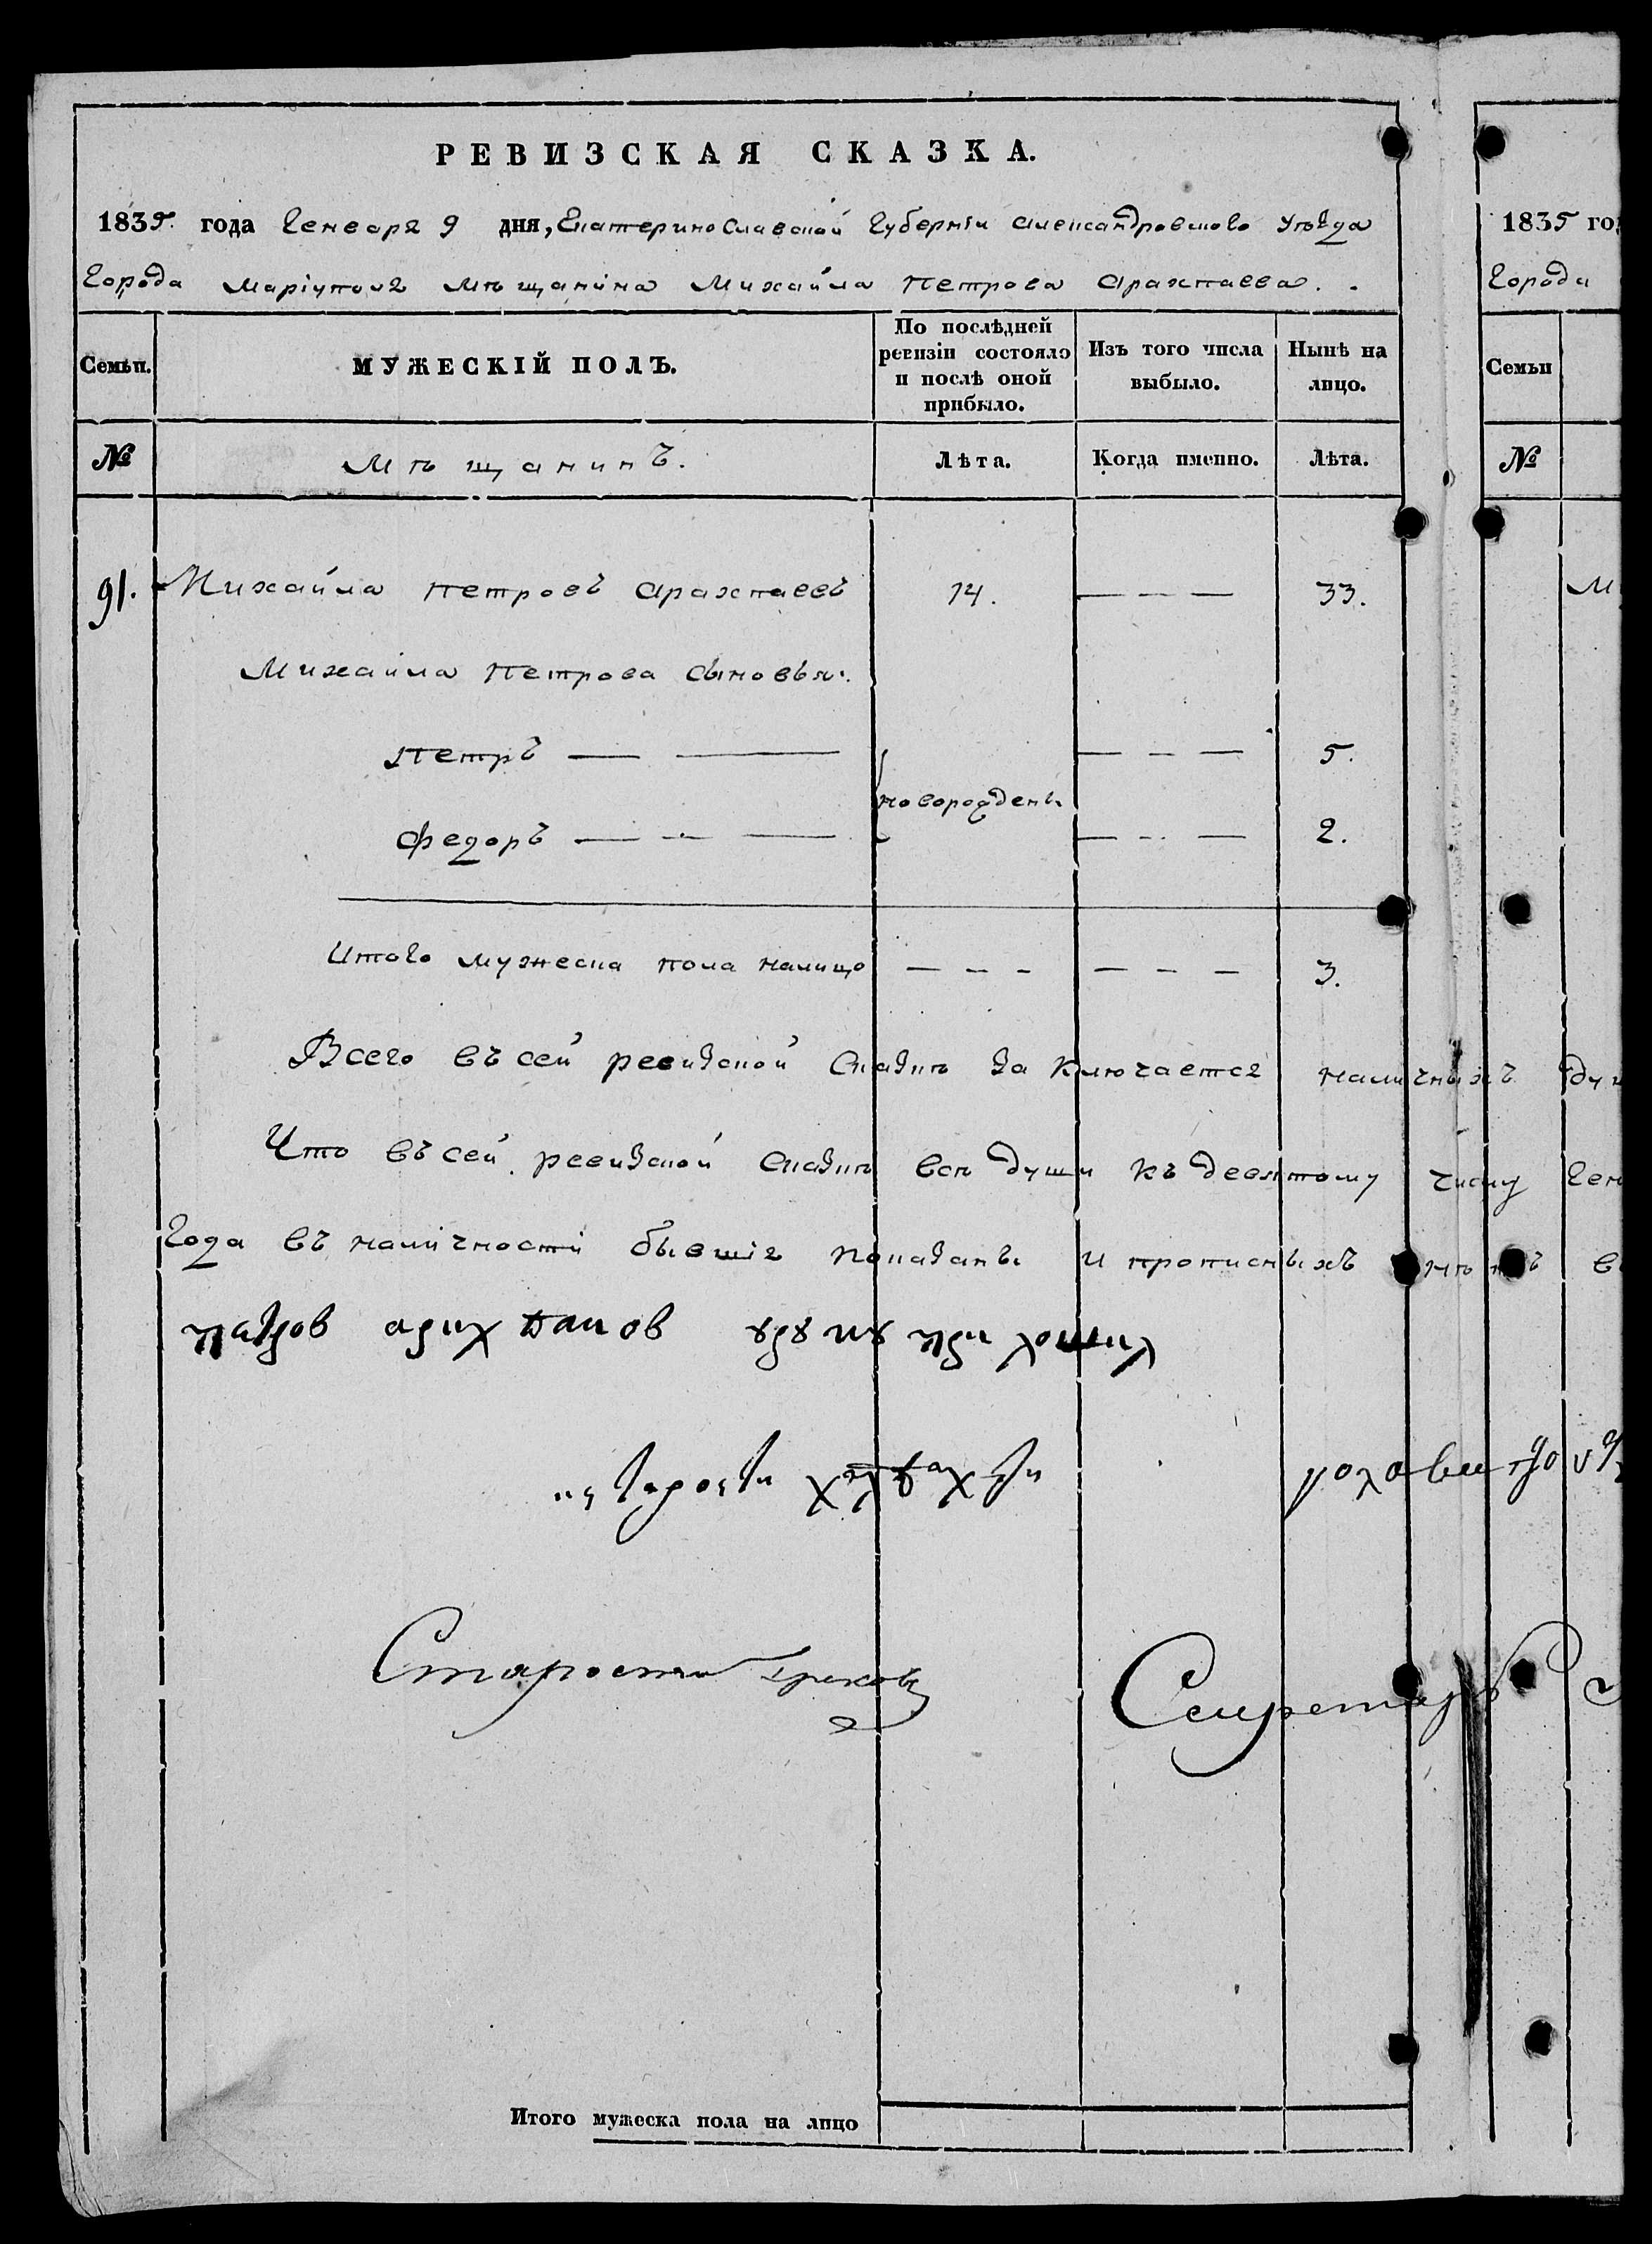 РЕВИЗСКАЯ СКАЗКА.
1835. года Генваря 9 дня, Екатеринославской Губерніи Александровскаго Уѣзда
Города Маріуполя Мѣщанина Михайла Петрова Арахпаева.
Семьи. МУЖЕСКІЙ ПОЛЪ. По послѣдней ревизіи состояло и послѣ оной прибыло. Изъ того числа выбыло. Нынѣ на лицо.
№ Мѣщанинъ. Лѣта. Когда именно. Лѣта.
91. Михайла Петровъ Арахпаевъ 14. — — — 33.
Михайла Петрова Сыновья:
Петръ — — — — — 5.
новорождены
Федоръ — — — — — — 2.
Итого мужеска пола налицо — — — — — — 3.
Всего въ сей ревизской Сказкѣ заключается наличныхъ
Что въ сей ревизской Сказкѣ всѣ души къ девятому числу
Года въ наличности бывшія показаны и прописныхъ
Староста Грековъ
Секретарь
Итого мужеска пола на лицо
1835 го
Города
Семьи
№